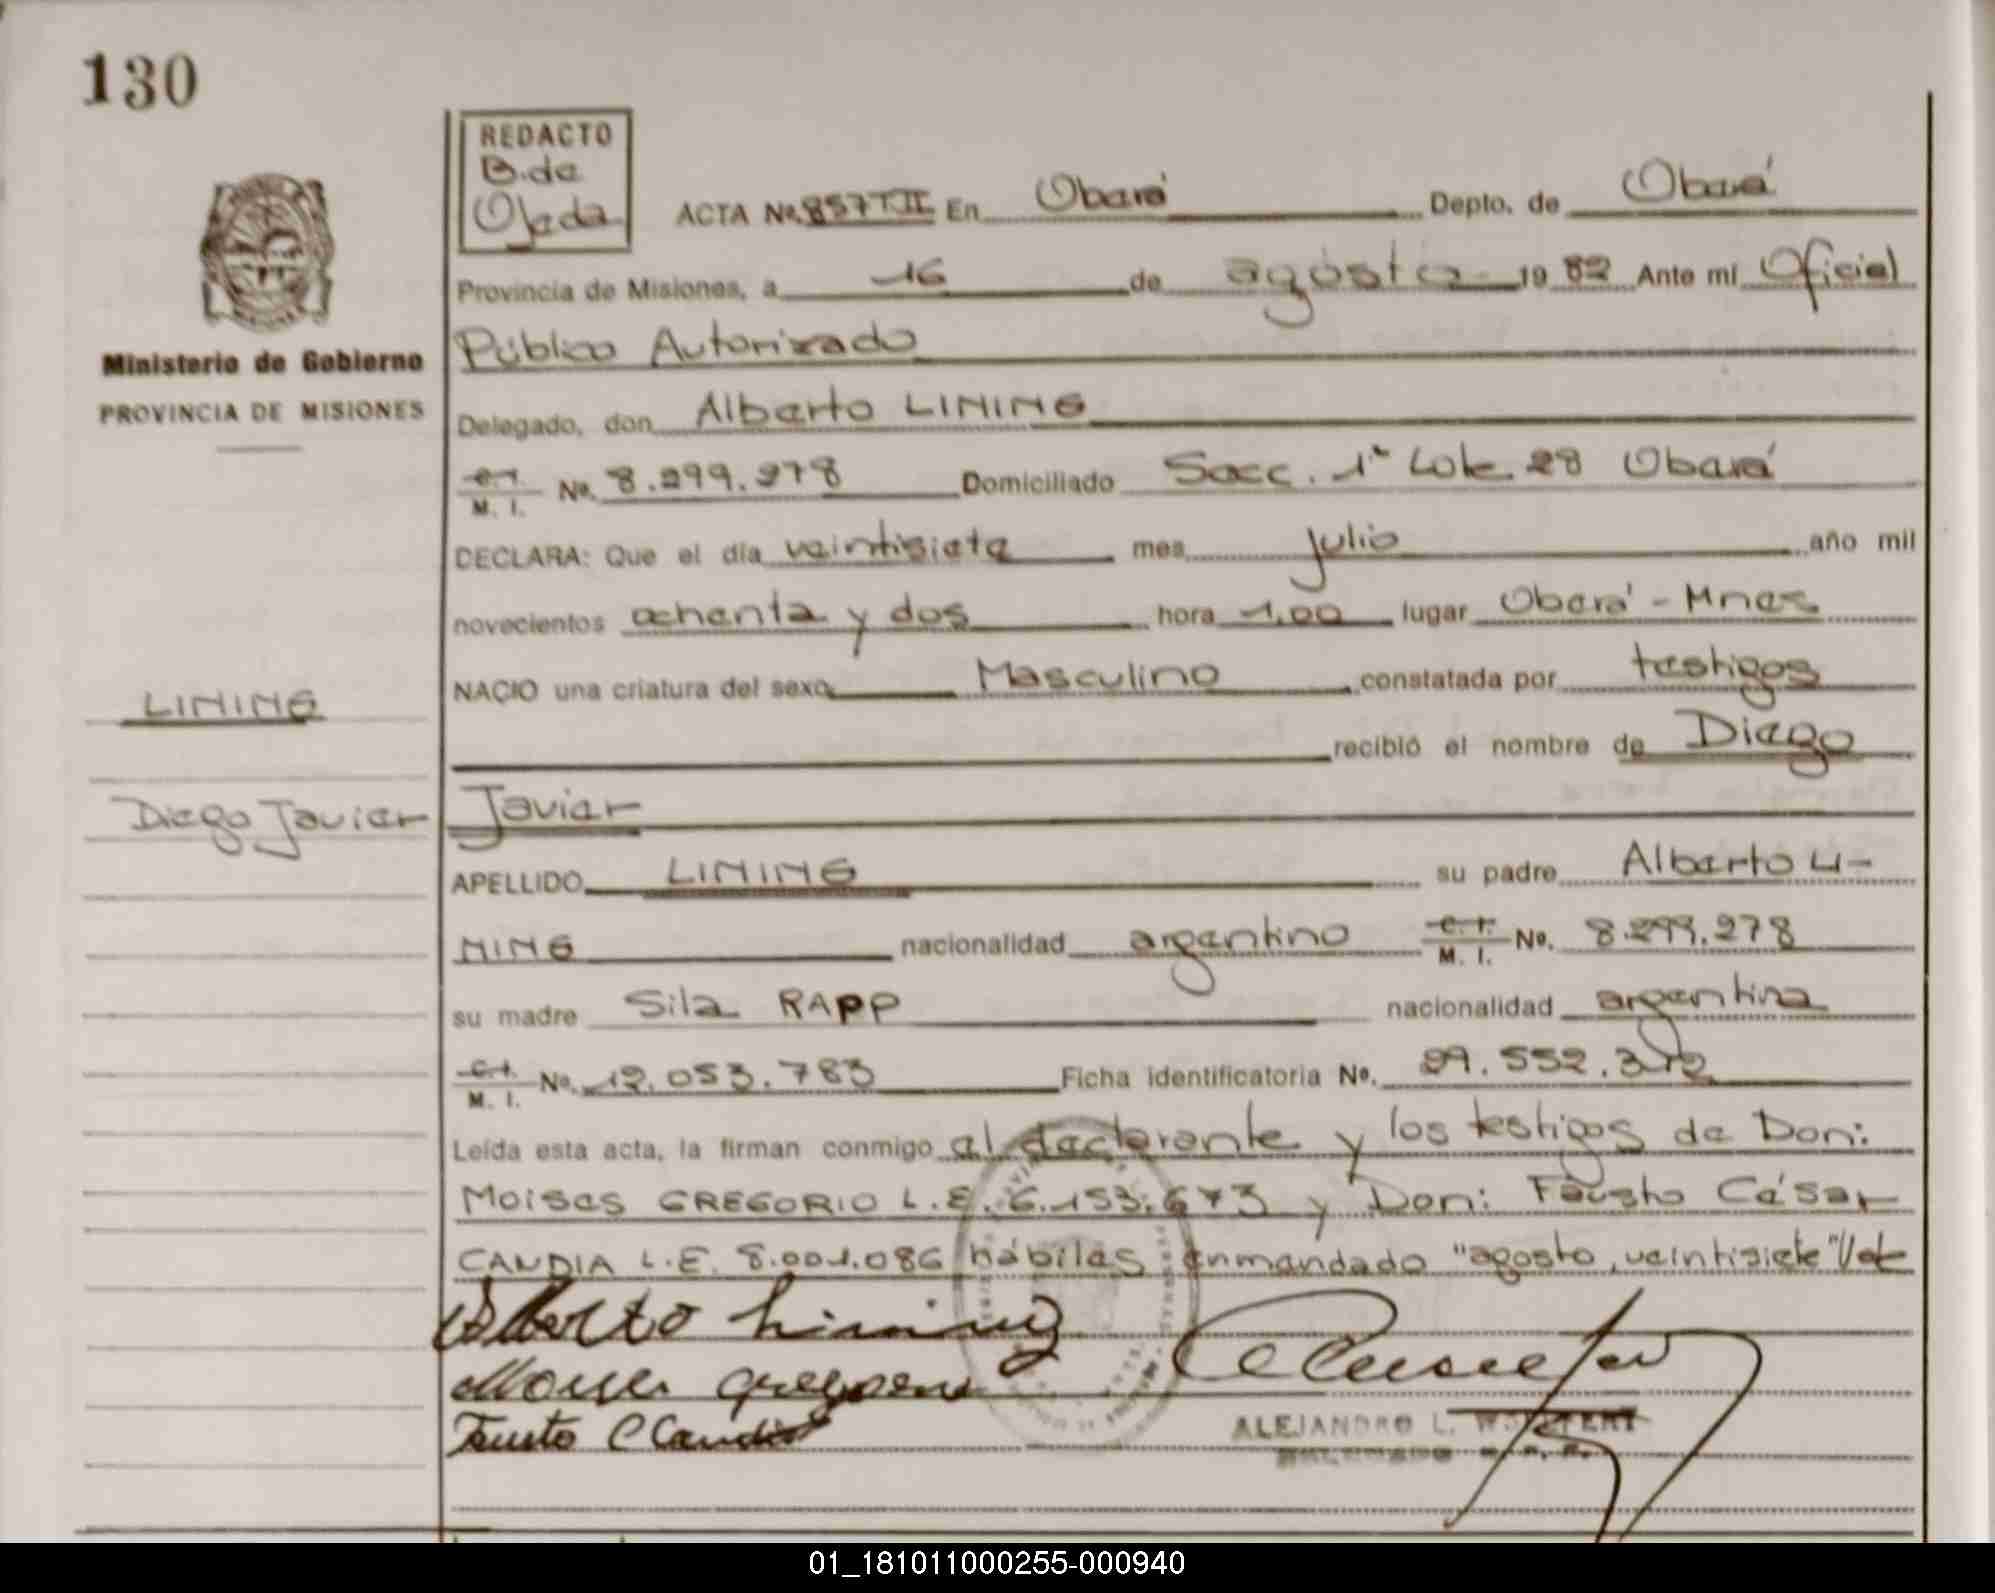 130
REDACTO
B. de
Ojeda
ACTA Nº 857 T II En Oberá Depto. de Oberá
Provincia de Misiones, a 16 de agosto 1982 Ante mí Oficial
Público Autorizado
Ministerio de Gobierno
PROVINCIA DE MISIONES
Delegado, don Alberto LINING
C.I. M. I. Nº. 8.299.278 Domiciliado Secc. 1ª Lote 28 Oberá
DECLARA: Que el día veintisiete mes julio año mil
novecientos ochenta y dos hora 1,00 lugar Oberá - Mnes
NACIO una criatura del sexo Masculino constatada por testigos
LINING
recibió el nombre de Diego
Diego Javier
Javier
APELLIDO LINING su padre Alberto LI-
NING nacionalidad argentino C.I. M. I. Nº. 8.299.278
su madre Sila RAPP nacionalidad argentina
C.I. M. I. Nº. 12.053.783 Ficha identificatoria Nº. 29.552.312
Leída esta acta, la firman conmigo el declarante y los testigos de Don:
MOISES GREGORIO L.E. 6.153.673 y Don: Fausto César
CANDIA L.E. 8.001.086 hábiles enmendado "agosto, veintisiete" Vale
Alberto Lining
Moises Gregorio
Fausto C Candia
ALEJANDRO L.
01_181011000255-000940